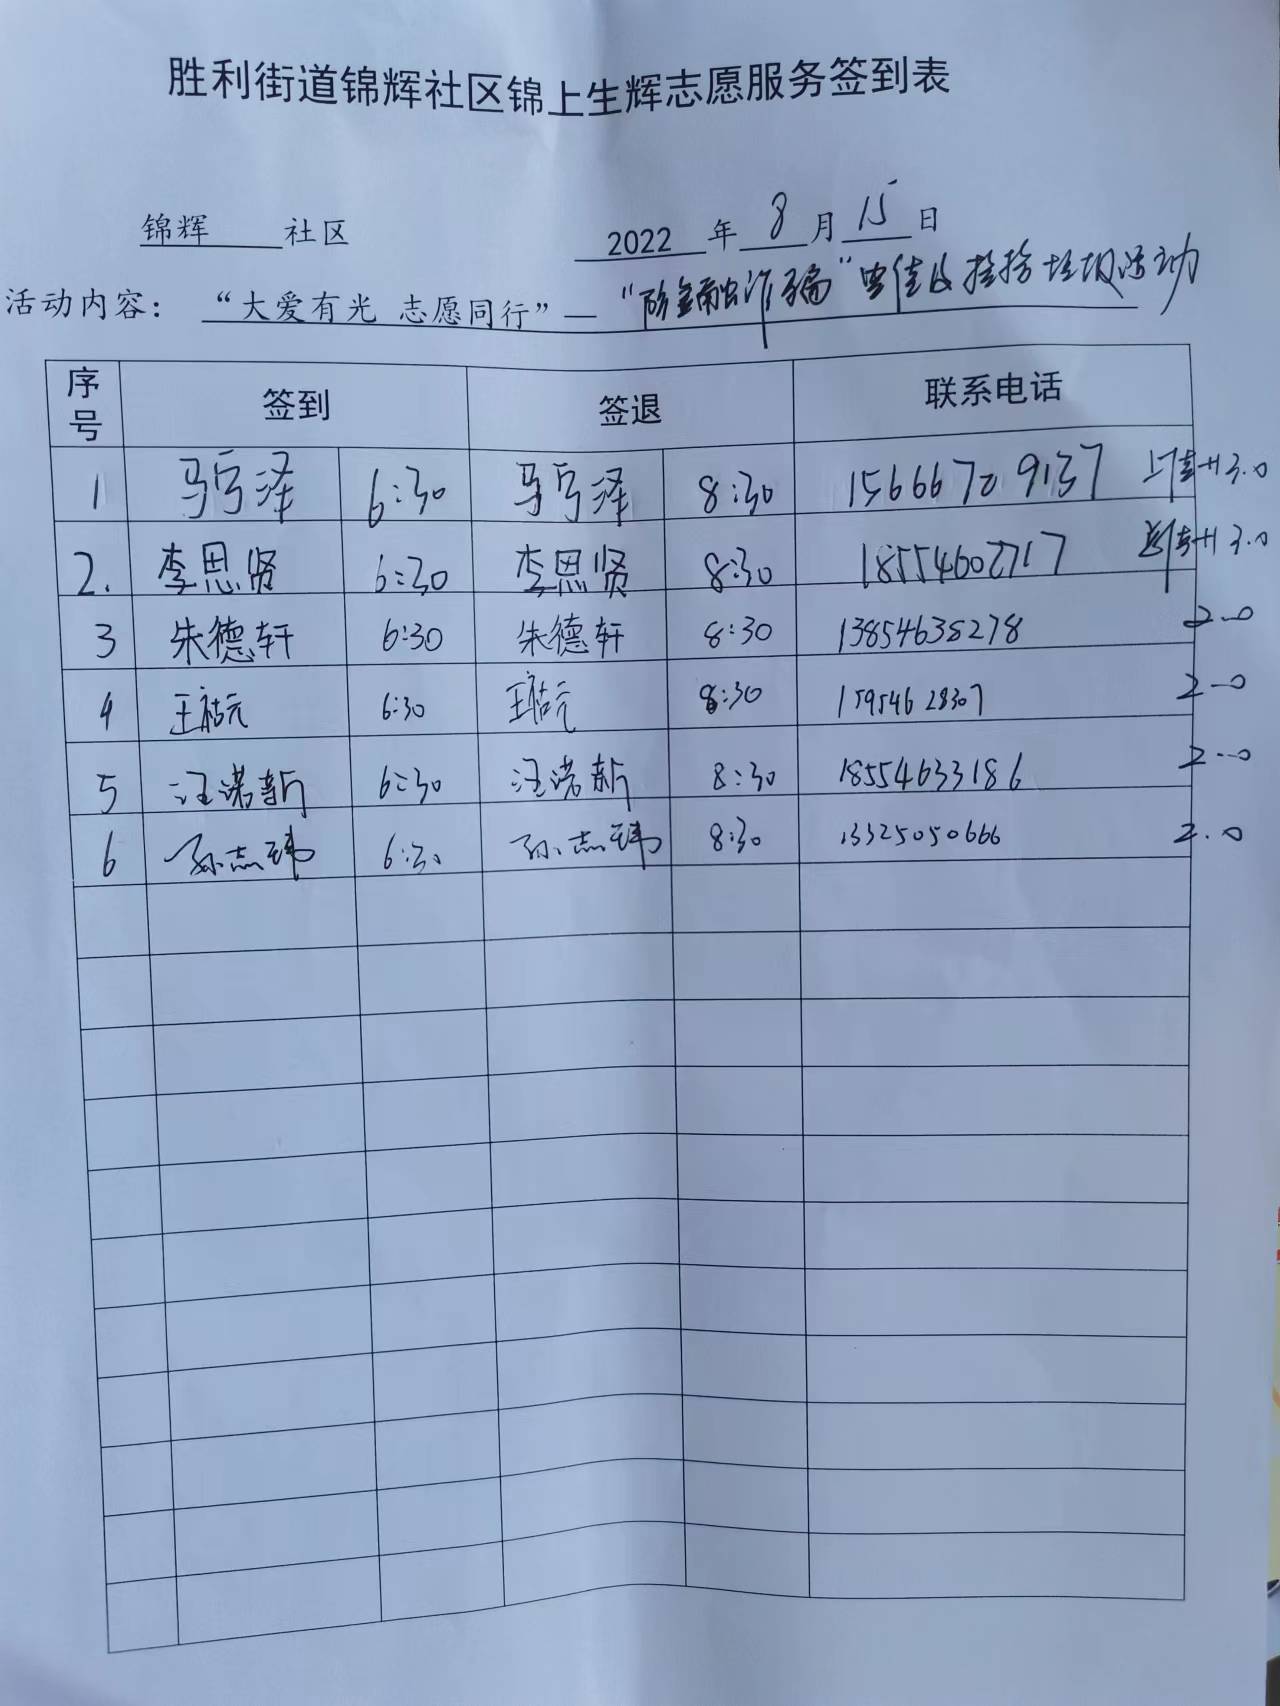 胜利街道锦辉社区锦上生辉志愿服务签到表
锦辉 社区 2022 年 8 月 15 日
活动内容：“大爱有光 志愿同行”—“防金融诈骗”宣传及捡拾垃圾活动
序号 签到 签退 联系电话
1 马 泽 6:30 马 泽 8:30 15666709137 3.0
2. 李思贤 6:30 李思贤 8:30 18554602717 3.0
3 朱德轩 6:30 朱德轩 8:30 13854638278 2.0
4 王祜元 6:30 王祜元 8:30 15954628307 2.0
5 汪诺新 6:30 汪诺新 8:30 18554633186 2.0
6 孙志玮 6:30 孙志玮 8:30 13325050666 2.0